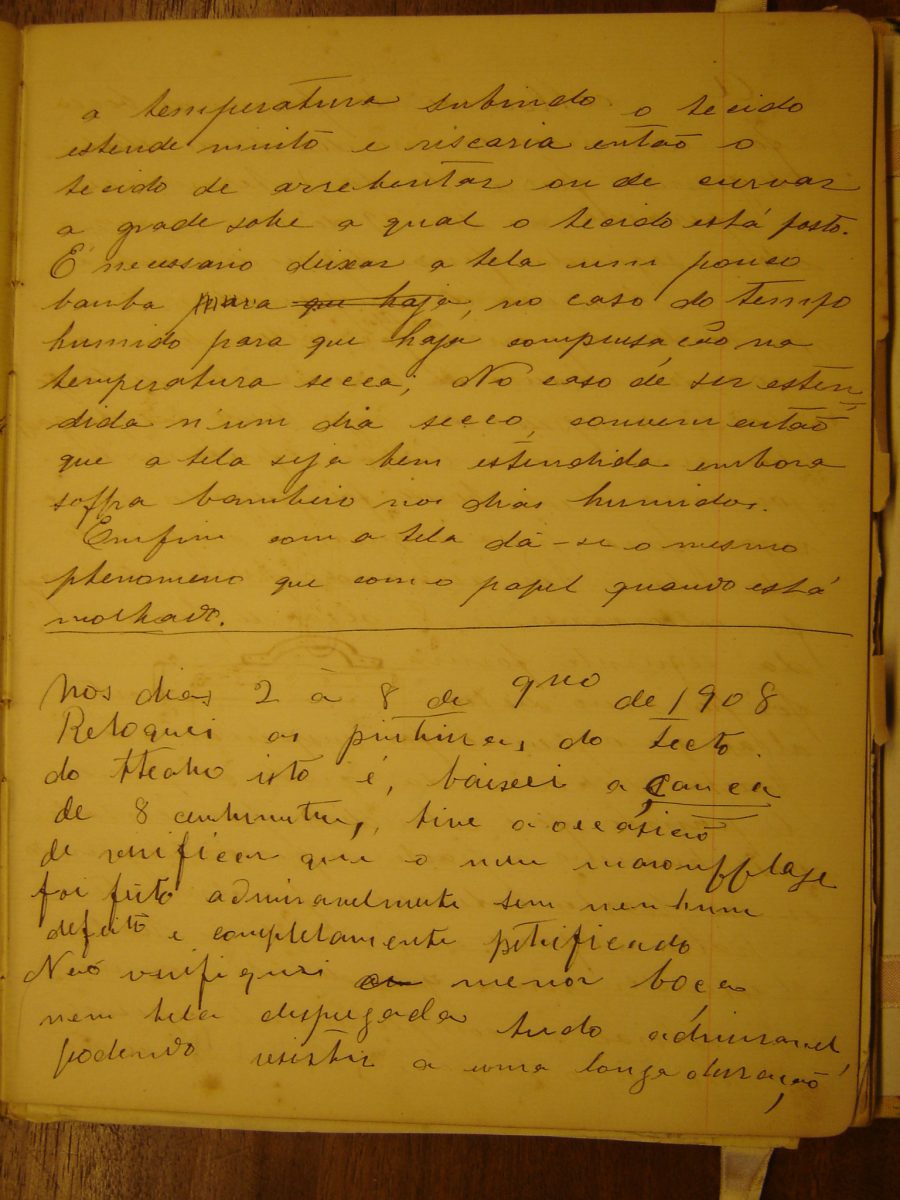 a temperatura subindo o tecido
estende muito e riscaria então o
tecido de arrebentar ou de curvar
a grade sobe a qual o tecido está posto.
É necessario deixar a tela um pouco
bamba para que haja, no caso do tempo
humido para que haja compensação na
temperatura secca; No caso de ser esten
dida n'um dia secco, convem então
que a tela seja bem estendida embora
soffra bambeiro nos dias humidos.
Emfim com a tela dá-se o mesmo
phenomeno que com o papel quando está
molhado.
Nos dias 2 à 8 de de 1908
Retoquei as pinturas do tecto
do theatro isto é, baixei a
de 8 centimetros, tive a occasião
de verificar que o meu maroufflage
foi feito admiravelmente sem nenhum
defeito e completamente petrificado
Não verifiquei menor boca
nem tela despegada tudo admiravel
podendo resistir a uma longa duração,